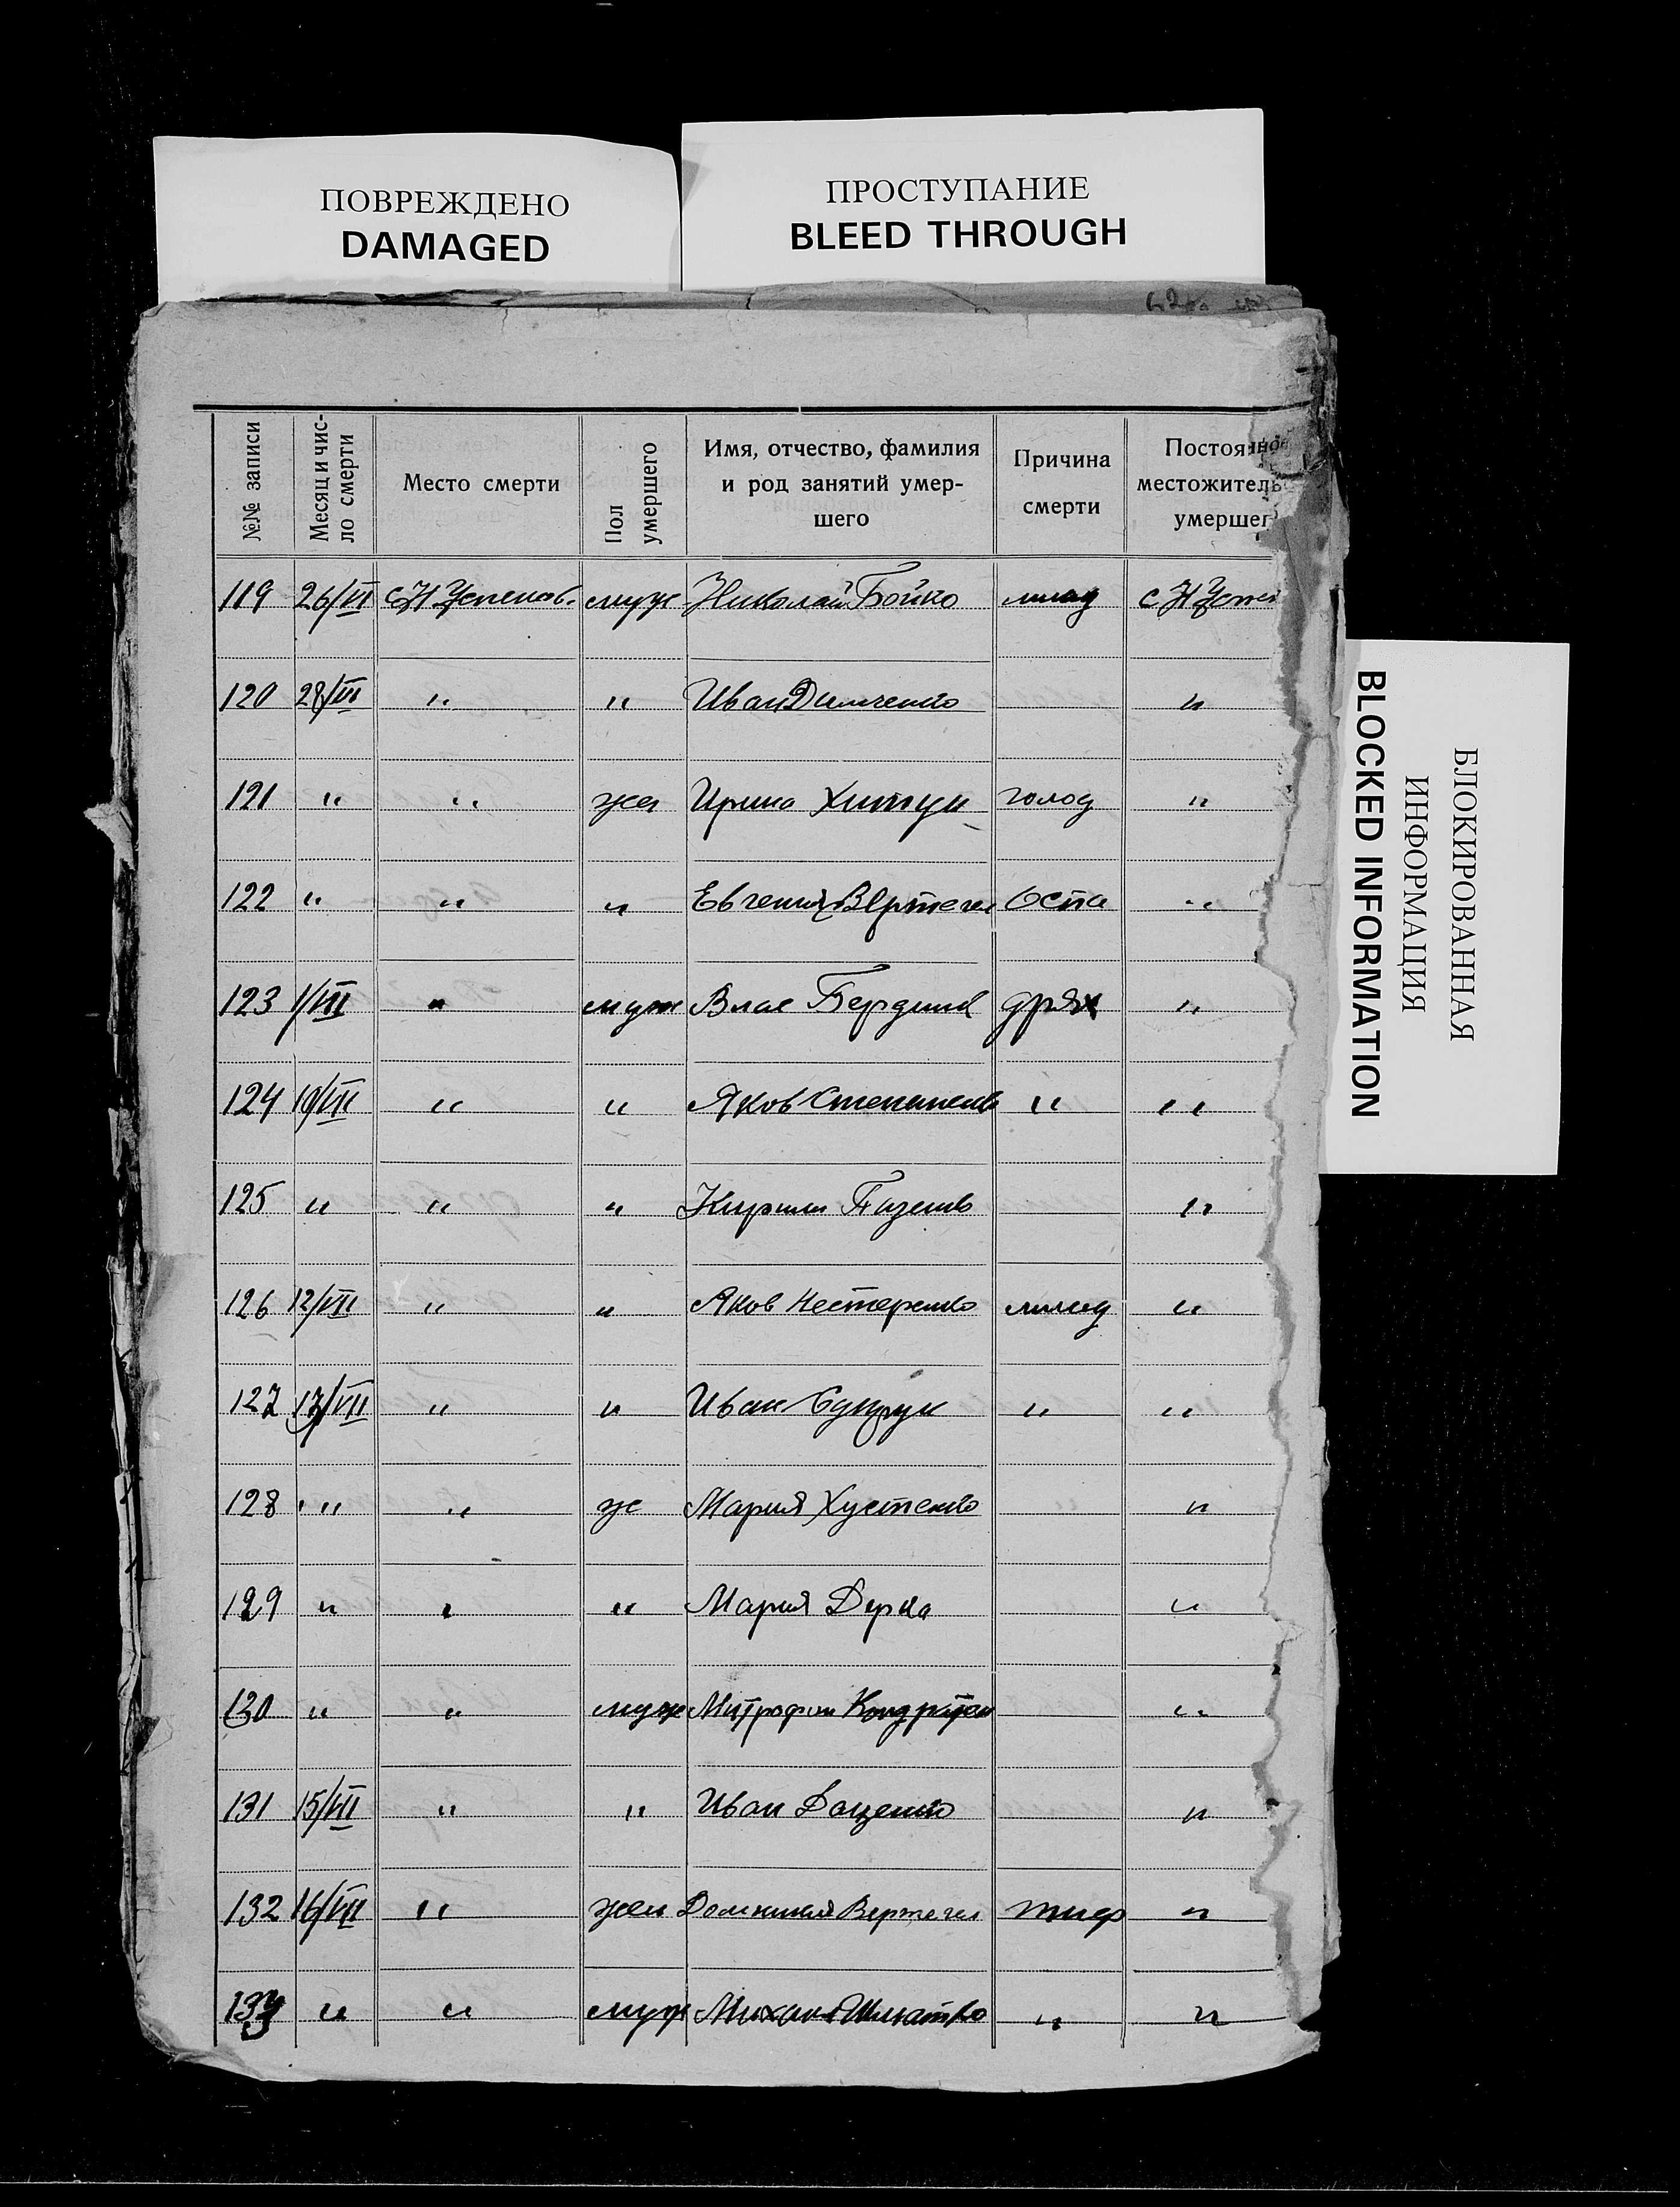 ПОВРЕЖДЕНО
DAMAGED
ПРОСТУПАНИЕ
BLEED THROUGH
№№ записи
Месяц и чис-
ло смерти
Место смерти
Пол
умершего
Имя, отчество, фамилия
и род занятий умер-
шего
Причина
смерти
Постоянное
местожитель
умершег
119 26/VI с Н Успенов. муж Николай Бойко млад с Н Успен
120 28/VI " " Иван Димченко "
121 " " жен Ирина голод "
122 " " " Евгения Вертегел Оспа "
123 1/VII " муж Влас дрях "
124 10/VII " " Яков Степаненко " "
125 " " " Кирилл "
126 12/VII " " Яков Нестеренко млад "
127 13/VII " " Иван " "
128 " " ж Мария Хустенко "
129 " " " Мария Дерка "
130 " " муж Митрофан "
131 15/VII " " Иван Доценко "
132 16/VII " жен Домникия Вертегел тиф "
133 " " муж Михаил Шматко " "
БЛОКИРОВАННАЯ
ИНФОРМАЦИЯ
BLOCKED INFORMATION